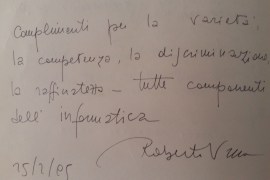 Complimenti per la varietà,
la competenza, la discriminazione,
la raffinatezza - tutte componenti
dell'informatica
Roberto
25/2/85